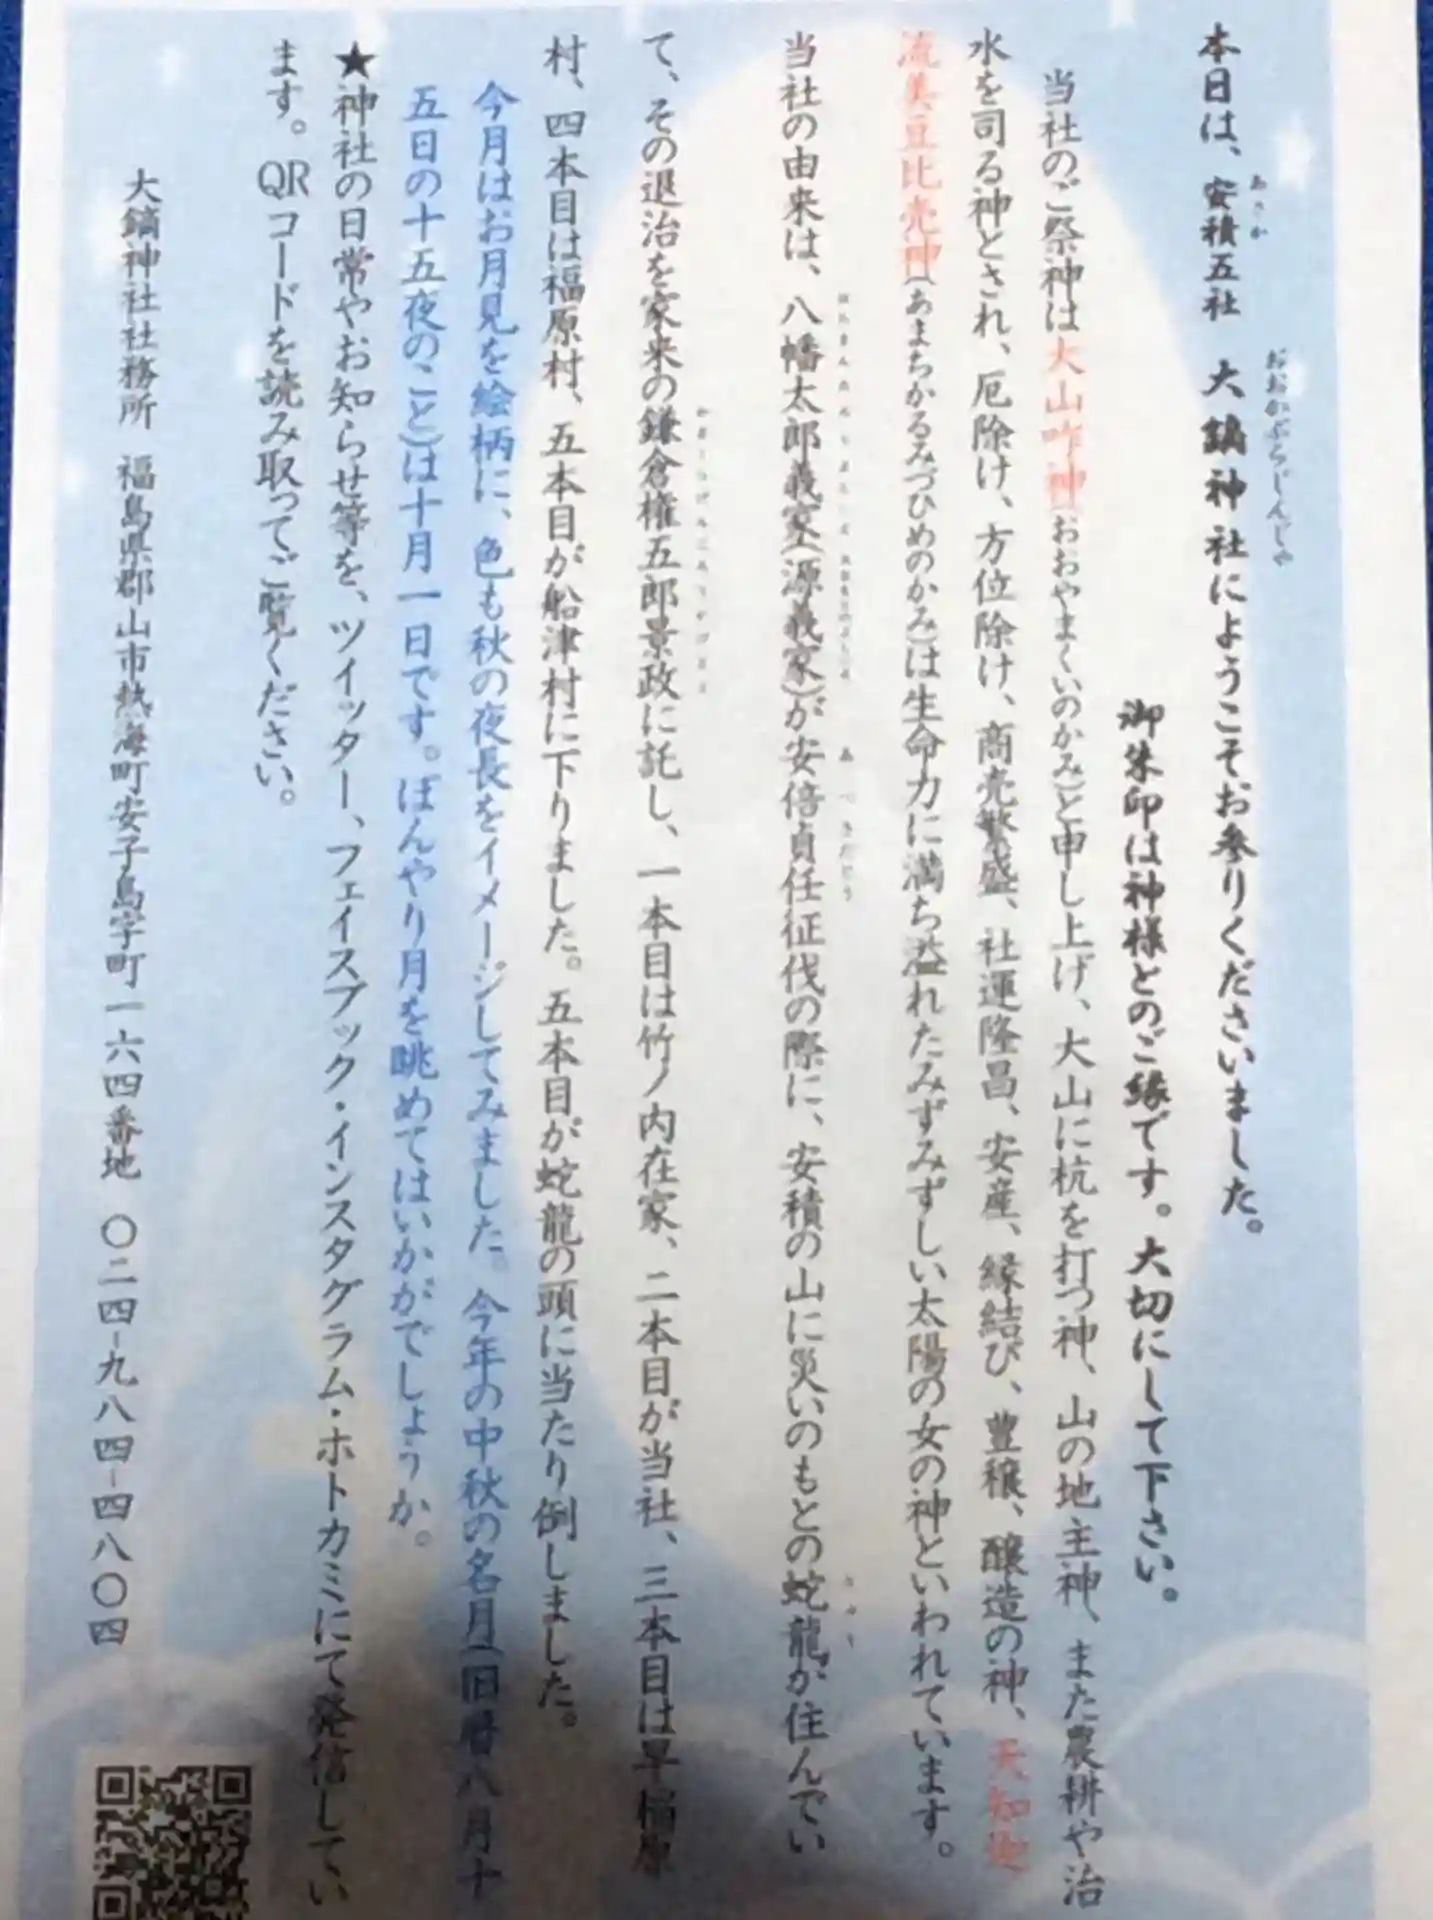 本日は、安積五社　大鏑神社にようこそお参りくださいました。
御朱印は神様とのご縁です。大切にして下さい。
当社のご祭神は大山咋神(おおやまくいのかみ)と申し上げ、大山に杭を打つ神、山の地主神、また農耕や治
水を司る神とされ、厄除け、方位除け、商売繁盛、社運隆昌、安産、縁結び、豊穣、醸造の神、天知迦
流美豆比売神(あまちかるみづひめのかみ)は生命力に満ち溢れたみずみずしい太陽の女の神といわれています。
当社の由来は、八幡太郎義家(源義家)が安倍貞任征伐の際に、安積の山に災いのもとの蛇龍が住んでい
て、その退治を家来の鎌倉権五郎景政に託し、一本目は竹ノ内在家、二本目が当社、三本目は早稲原
村、四本目は福原村、五本目が船津村に下りました。五本目が蛇龍の頭に当たり倒しました。
今月はお月見を絵柄に、色も秋の夜長をイメージしてみました。今年の中秋の名月(旧暦八月十
五日の十五夜のこと)は十月一日です。ぼんやり月を眺めてはいかがでしょうか。
★神社の日常やお知らせ等を、ツイッター、フェイスブック・インスタグラム・ホトカミにて発信してい
ます。QRコードを読み取ってご覧ください。
大鏑神社社務所　福島県郡山市熱海町安子島字町一六四番地　〇二四-九八四-四八〇四